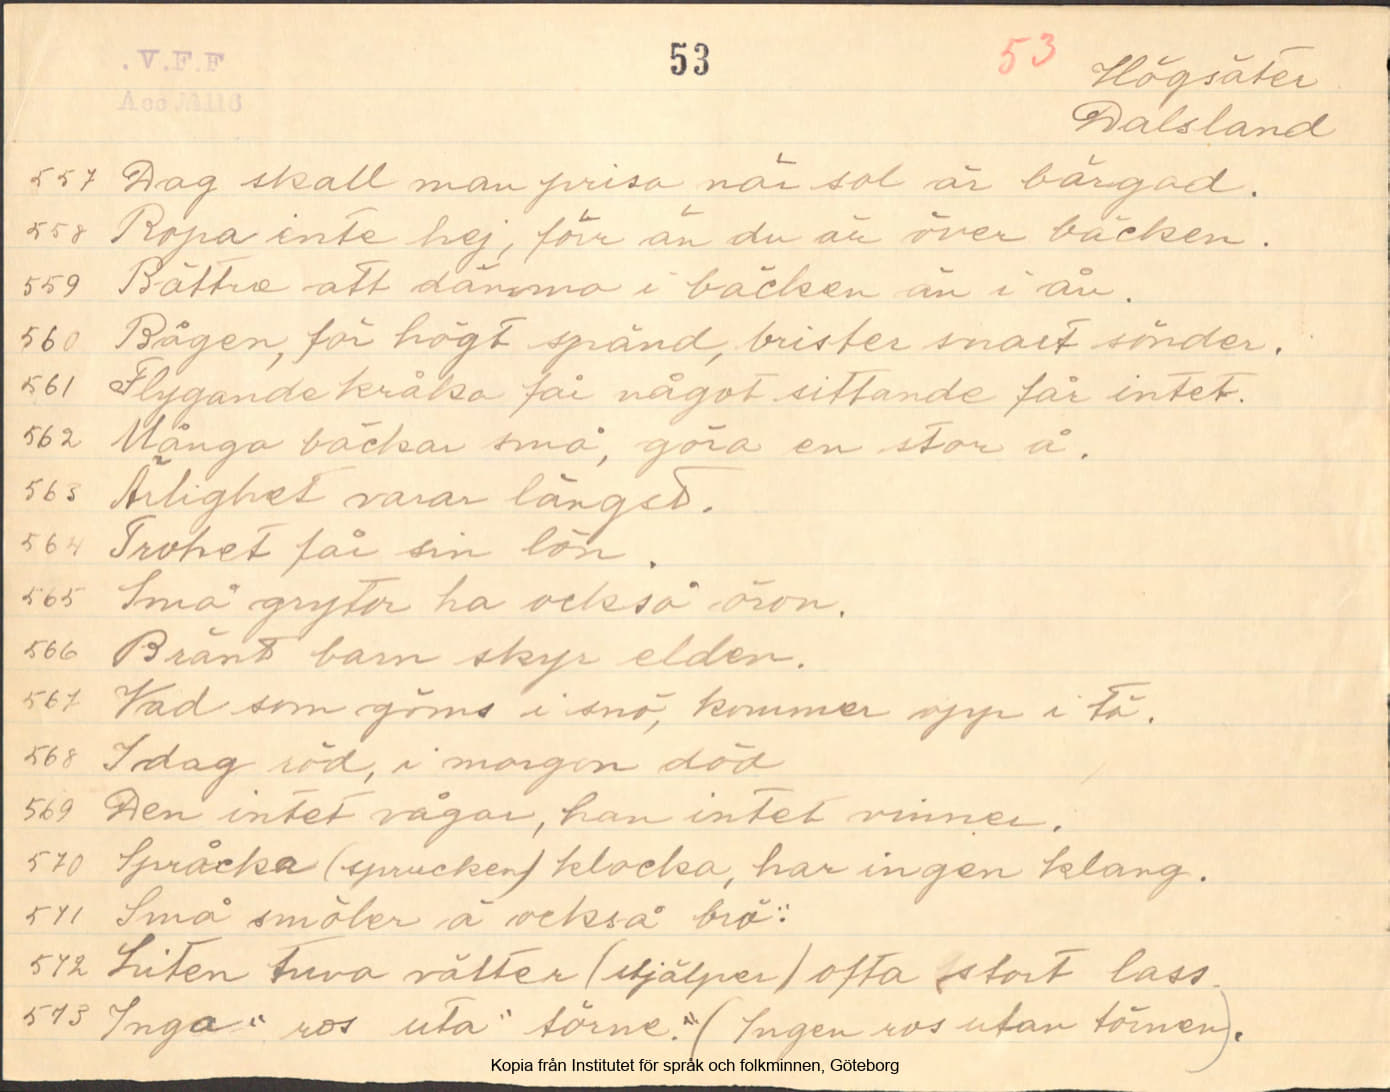 . V.F.F
Acc M116
53
53
Högsäter
Dalsland
557 Dag skall man prisa när sol är bärgad.
558 Ropa inte hej, förr än du är över bäcken.
559 Bättre att dämma i bäcken än i ån.
560 Bågen, för högt spänd, brister snart sönder.
561 Flygande kråka får något sittande får intet.
562 Många bäckar små, göra en stor å.
563 Ärlighet varar längst.
564 Trohet får sin lön.
565 Små grytor ha också öron.
566 Bränt barn skyr elden.
567 Vad som göms i snö, kommer opp i tö.
568 I dag röd, i morgon död
569 Den intet vågar, han intet vinner.
570 Språcka (sprucken) klocka, har ingen klang.
571 Små smöler ä också brö":
572 Liten tuva välter (stjälper) ofta stort lass.
573 Inga" ros uta" törne." (Ingen ros utan törnen).
Kopia från Institutet för språk och folkminnen, Göteborg